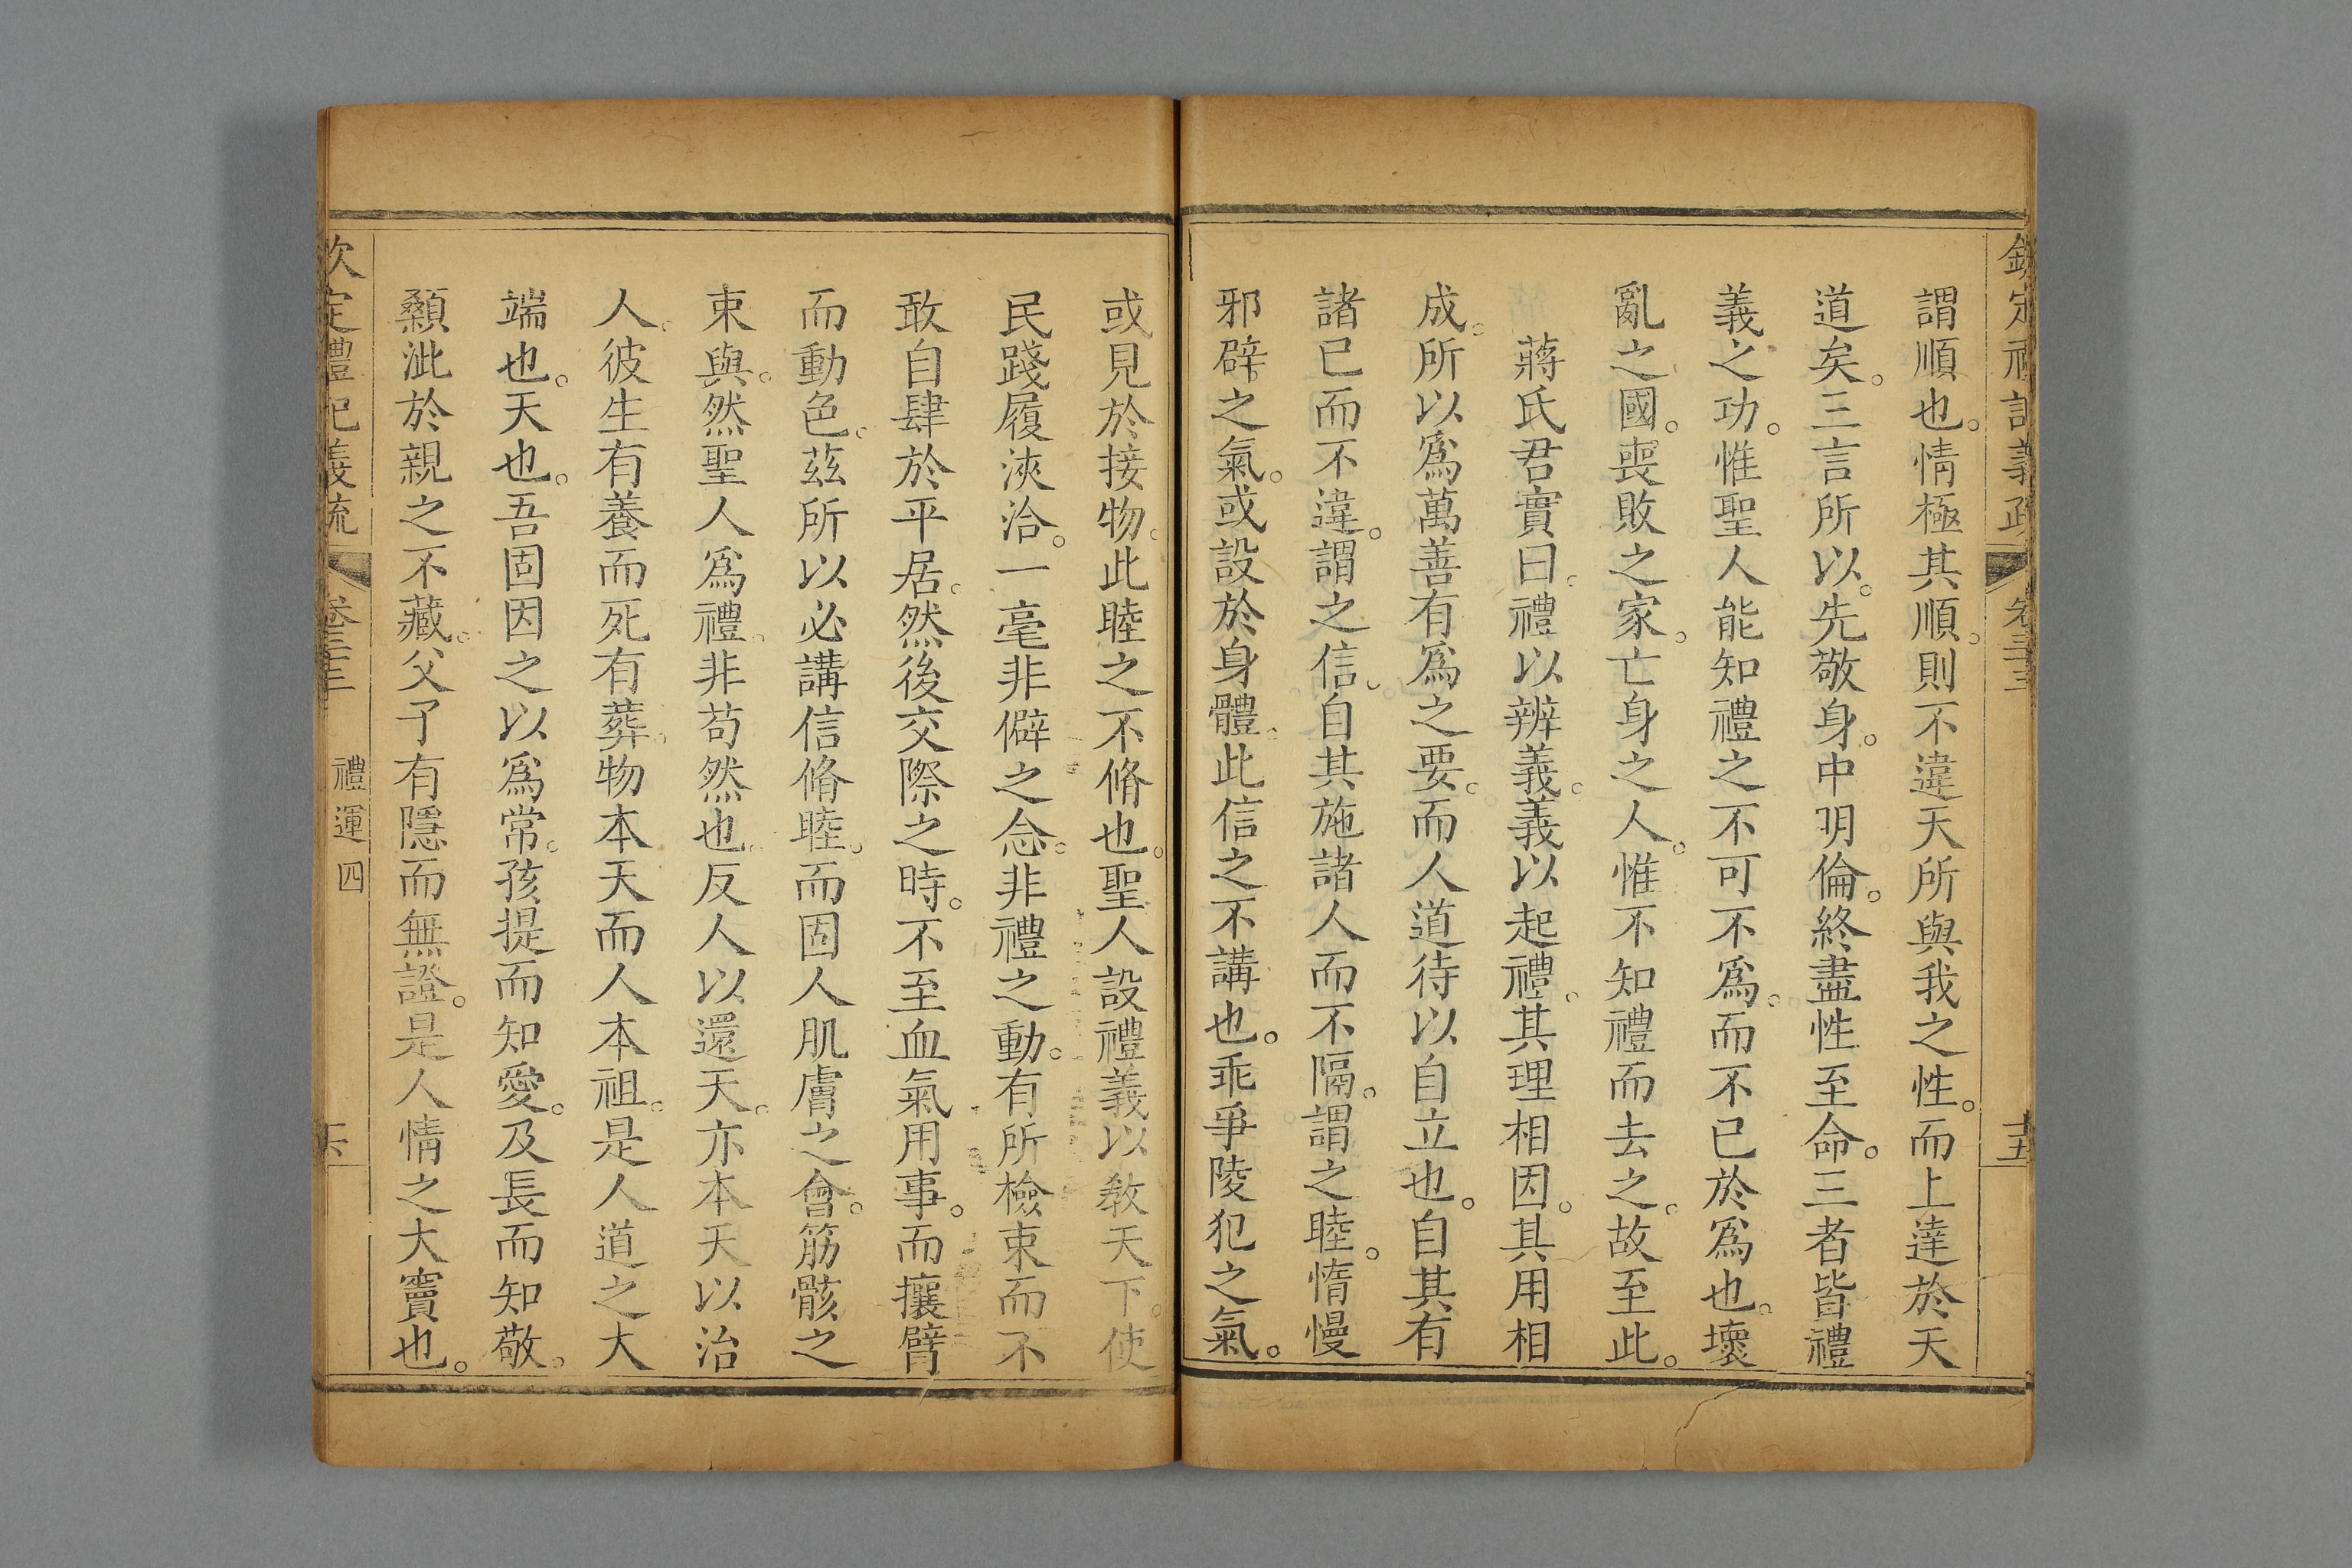 欽定禮記義疏 卷三十三 十五
謂順也。情極其順。則不違天所與我之性。而上達於天
道矣。三言所以。先敬身。中明倫。終盡性至命。三者皆禮
義之功。惟聖人能知禮之不可不爲。而不已於爲也。壞
亂之國。喪敗之家。亡身之人。惟不知禮而去之。故至此。
蔣氏君實曰。禮以辨義。義以起禮。其理相因。其用相
成。所以爲萬善有爲之要。而人道待以自立也。自其有
諸已而不違。謂之信。自其施諸人而不隔。謂之睦。惰慢
邪辟之氣。或設於身體。此信之不講也。乖爭陵犯之氣。
或見於接物。此睦之不脩也。聖人設禮義以敎天下。使
民踐履浹洽。一毫非僻之念。非禮之動。有所檢束而不
敢自肆於平居。然後交際之時。不至血氣用事。而攘臂
而動色。茲所以必講信脩睦。而固人肌膚之會。筋骸之
束與。然聖人爲禮。非苟然也。反人以還天。亦本天以治
人。彼生有養而死有葬。物本天而人本祖。是人道之大
端也。天也。吾固因之以爲常。孩提而知愛。及長而知敬。
顙泚於親之不藏。父子有隱而無證。是人情之大竇也。
欽定禮記義疏 卷三十三 禮運四